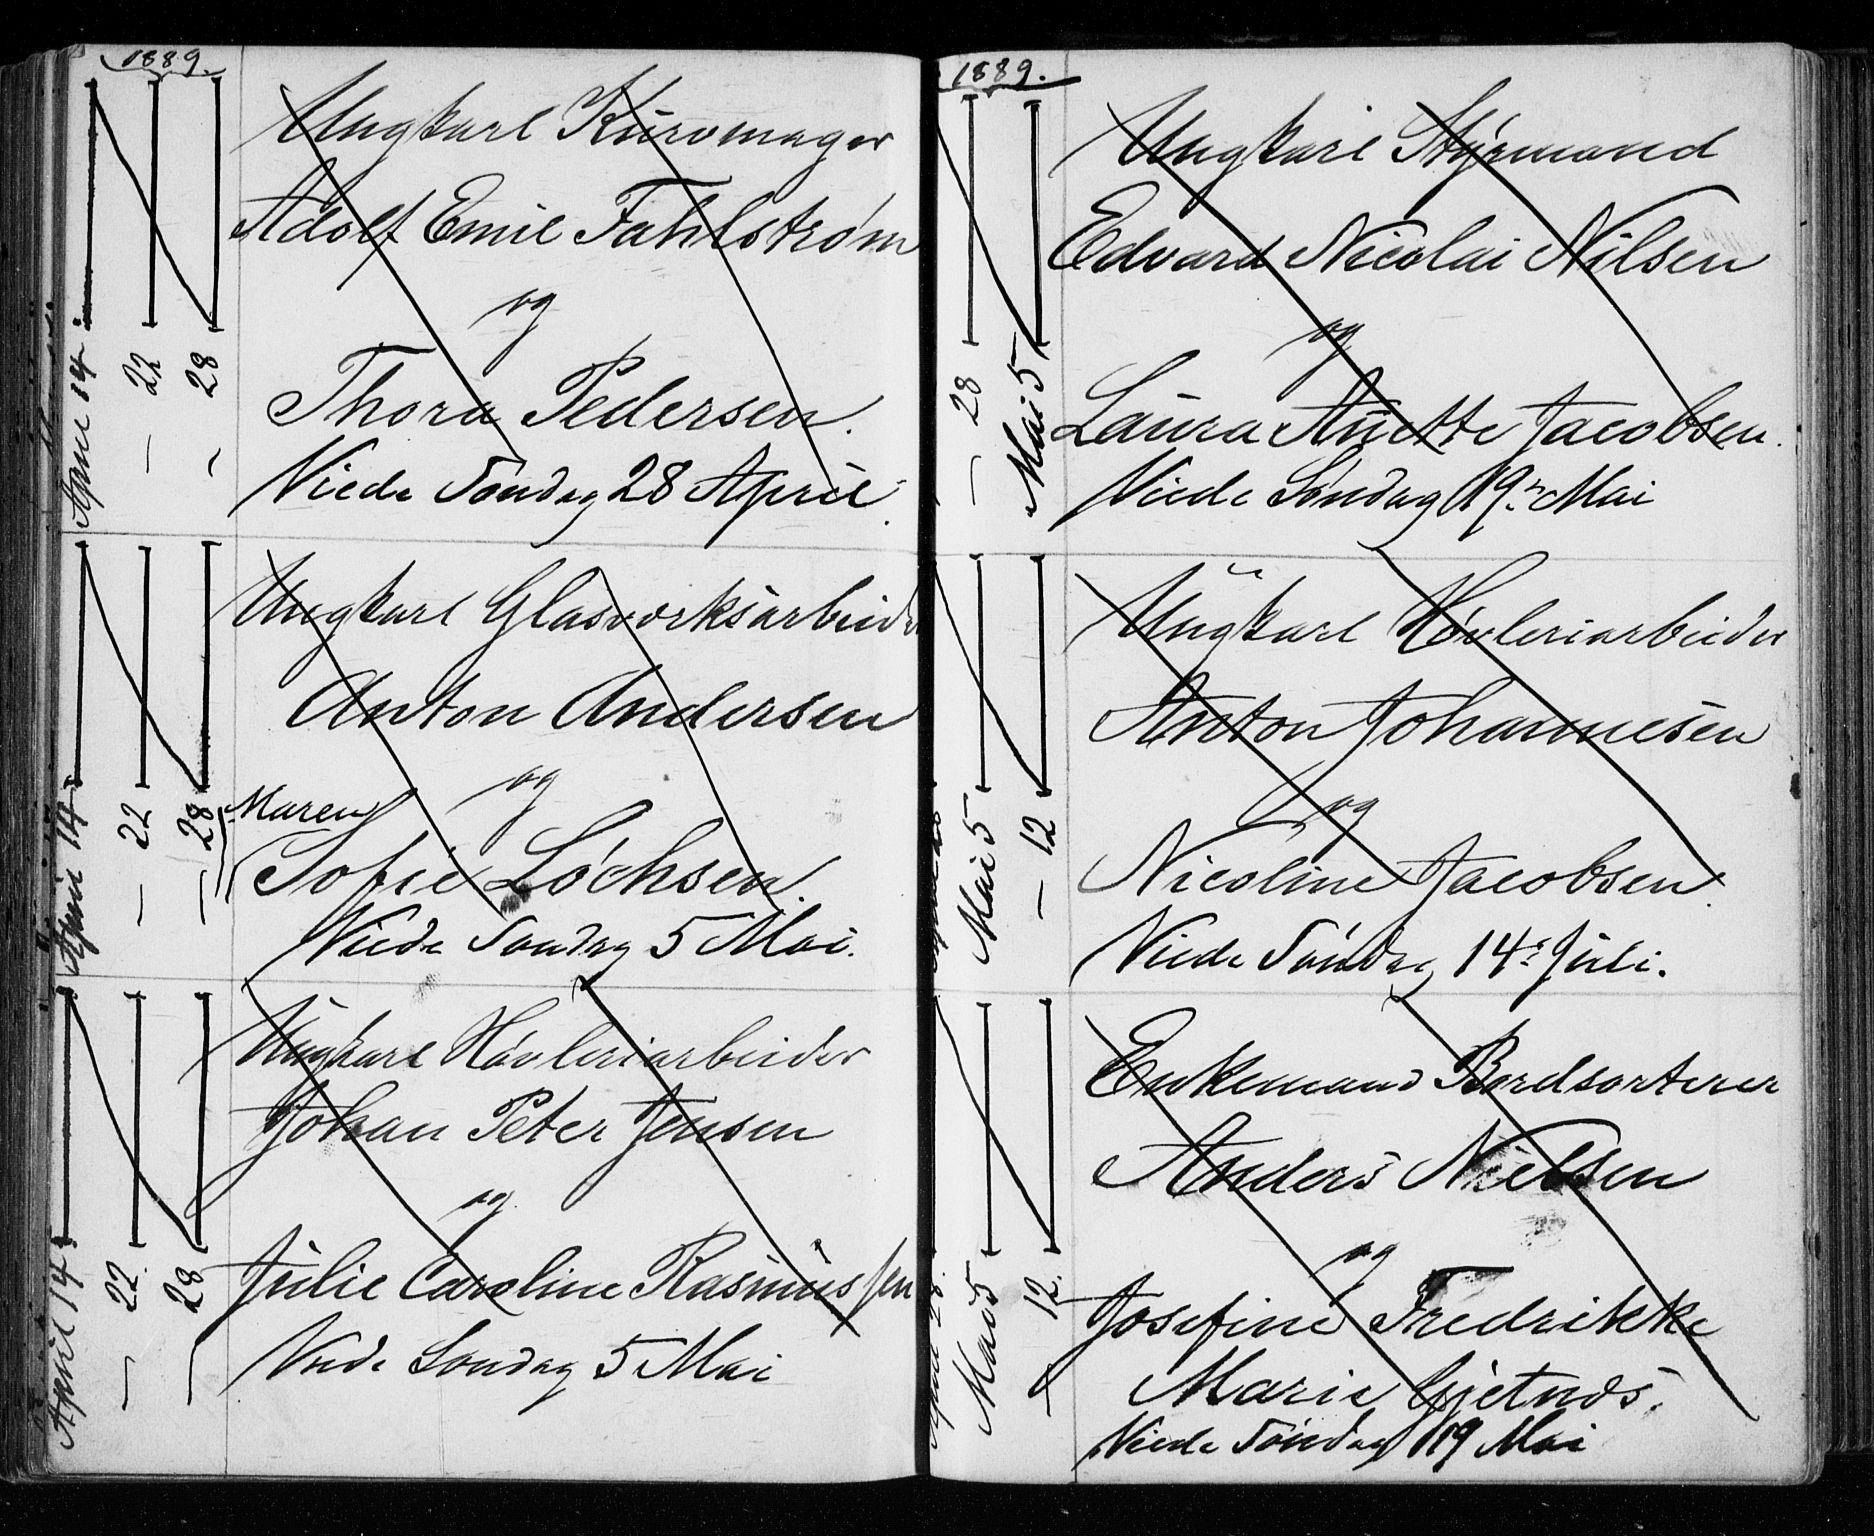 1889.
April 14
— 22
— 28
Ungkarl Kurvmager
Adolf Emil Fahlstrøm
og
Thora Pedersen.
Viede Søndag 28 April.
April 14
— 22
— 28
Ungkarl Glasværksarbeider
Anton Andersen
og
Maren
Sofie Löchsen.
Viede Søndag 5 Mai.
April 14
— 22
— 28
Ungkarl Høvleriarbeider
Johan Peter Jensen
og
Julie Caroline Rasmussen
Viede Søndag 5 Mai
1889.
— 28
Mai 5
Ungkarl Styrmand
Edvard Nicolai Nilsen
og
Laura Anette Jacobsen.
Viede Søndag 19de Mai
Mai 5
— 12
Ungkarl Høvleriarbeider
Anton Johannesen
og
Nicoline Jacobsen.
Viede Søndag 14de Juli.
April 28.
Mai 5
— 12.
Enkemand Bordsorterer
Anders Nielsen
og
Josefine Fredrikke
Marie Gjetnæs.
Viede Søndag 19 Mai